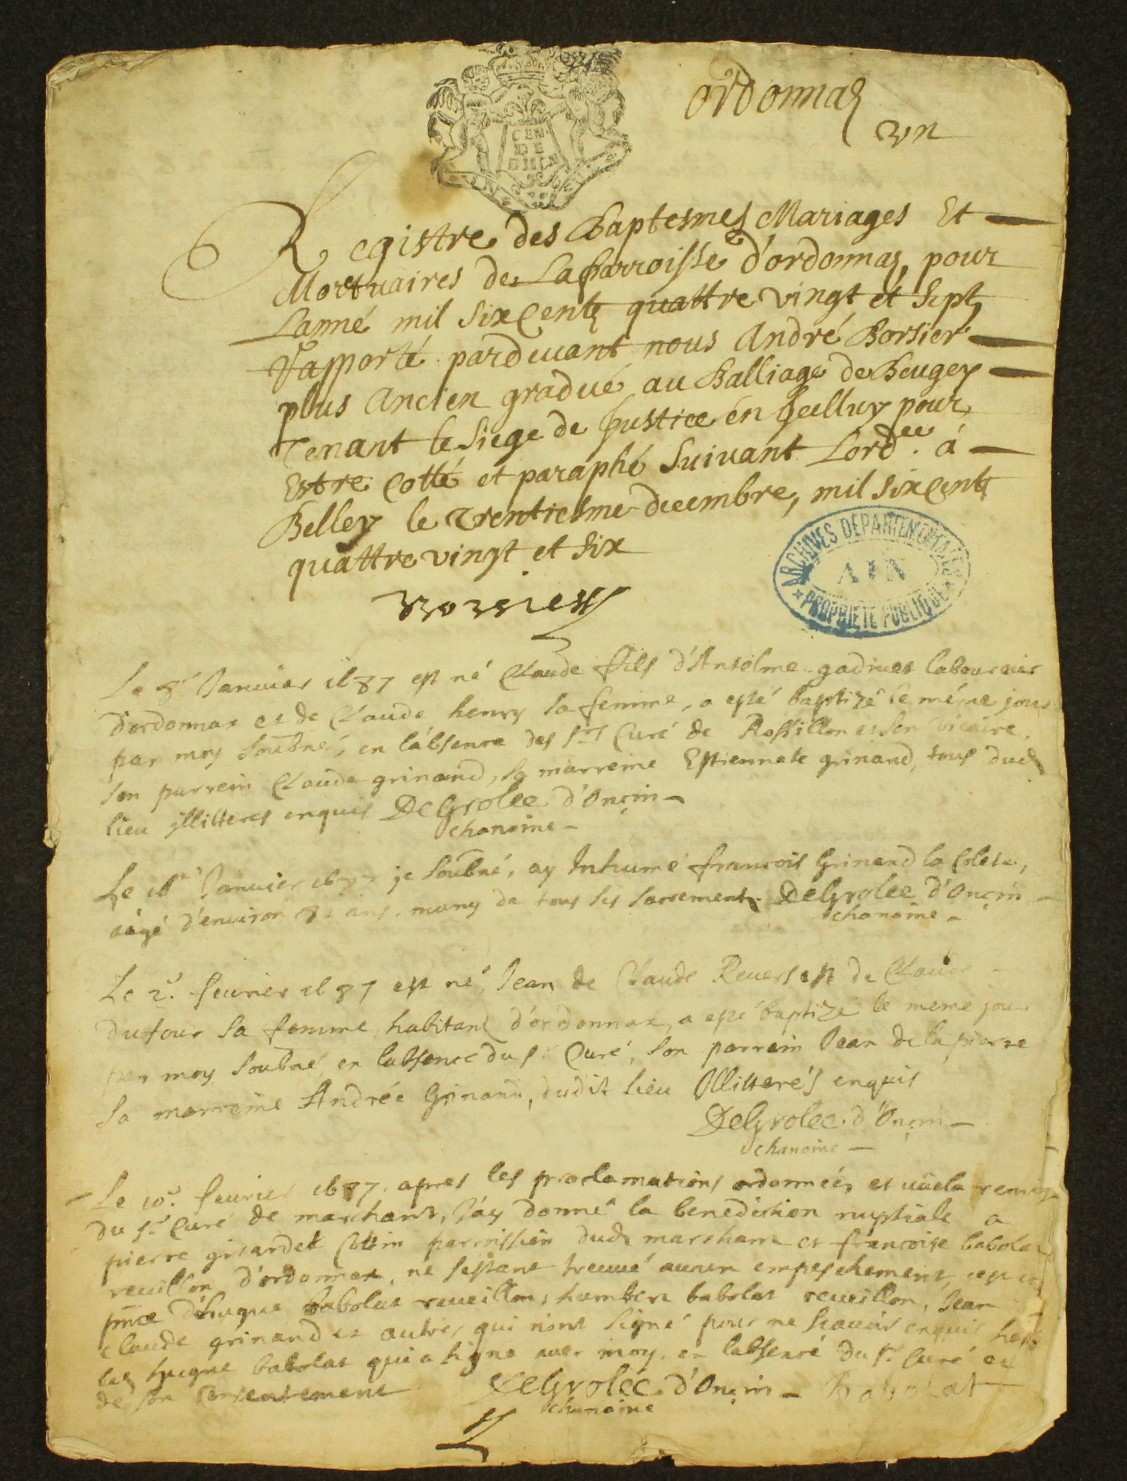 ordonnaz
un
Registre des Baptesmes Mariages Et
Mortuaires de La parroisse d'ordonnaz, pour
Lanné mil six Centz quattre vingt et Sept
Rapporté pardevant nous André Borsier
plus Ancien gradué au Balliage de Beugey
Tenant le Siege de Justice en pour
Estre Cotté et paraphé Suivant Lord.ce á
Belley le trentiesme decembre, mil six Centz
quattre vingt et six
ARCHIVES DÉPARTEMENTALES
AIN
PROPRIÉTÉ PUBLIQUE
Borsier
Le 8e Januier 1687 est né Claude fils d'Antelme laboureur
d'ordonnax et de Claude henry sa femme, a esté baptizé le méme jour
par moy soubné, en l'absence des Srs Curé de Rossillon et son vicaire,
son parrein Claude grinand, sa marreine Estiennate grinand, tous dud
lieu illitteres enquis DeGrolee d'Oncin
chanoine
Le Januier 1687 je soubné, ay Inhumé francois Grinand la
aagé d'environ ans, muny de tous ses sacrements DeGrolee d'Oncin
chanoine
Le 2e feurier 1687 est né Jean de Claude Reuers et de Claude
Dufour sa femme habitans d'ordonnax, a esté baptizé le meme jour
par moy soubné en labsence du Sr Curé, son parrein Jean de la pierre
sa marreine Andrée Grinand, dudit lieu Illitterés enquis
DeGrolee d'Oncin
chanoine
Le 10e feurier 1687 apres les proclamations ordonnées et
du Sr Curé de marchant, J'ay donné la benediction nuptiale a
pierre girardet parroissien dud marchant et francoise babolat
reueillon d'ordonnax, ne s'estant treuué aucun empeschement,
d'hugue babolat reueillon, humbert babolat reueillon, Jean
claude grinand et autres qui n'ont signé pour ne scauoir enquis
hugue babolat qui a signé auec moy, en labsence du Sr Curé et
de son consentement DeGrolee d'Oncin Babolat
chanoine